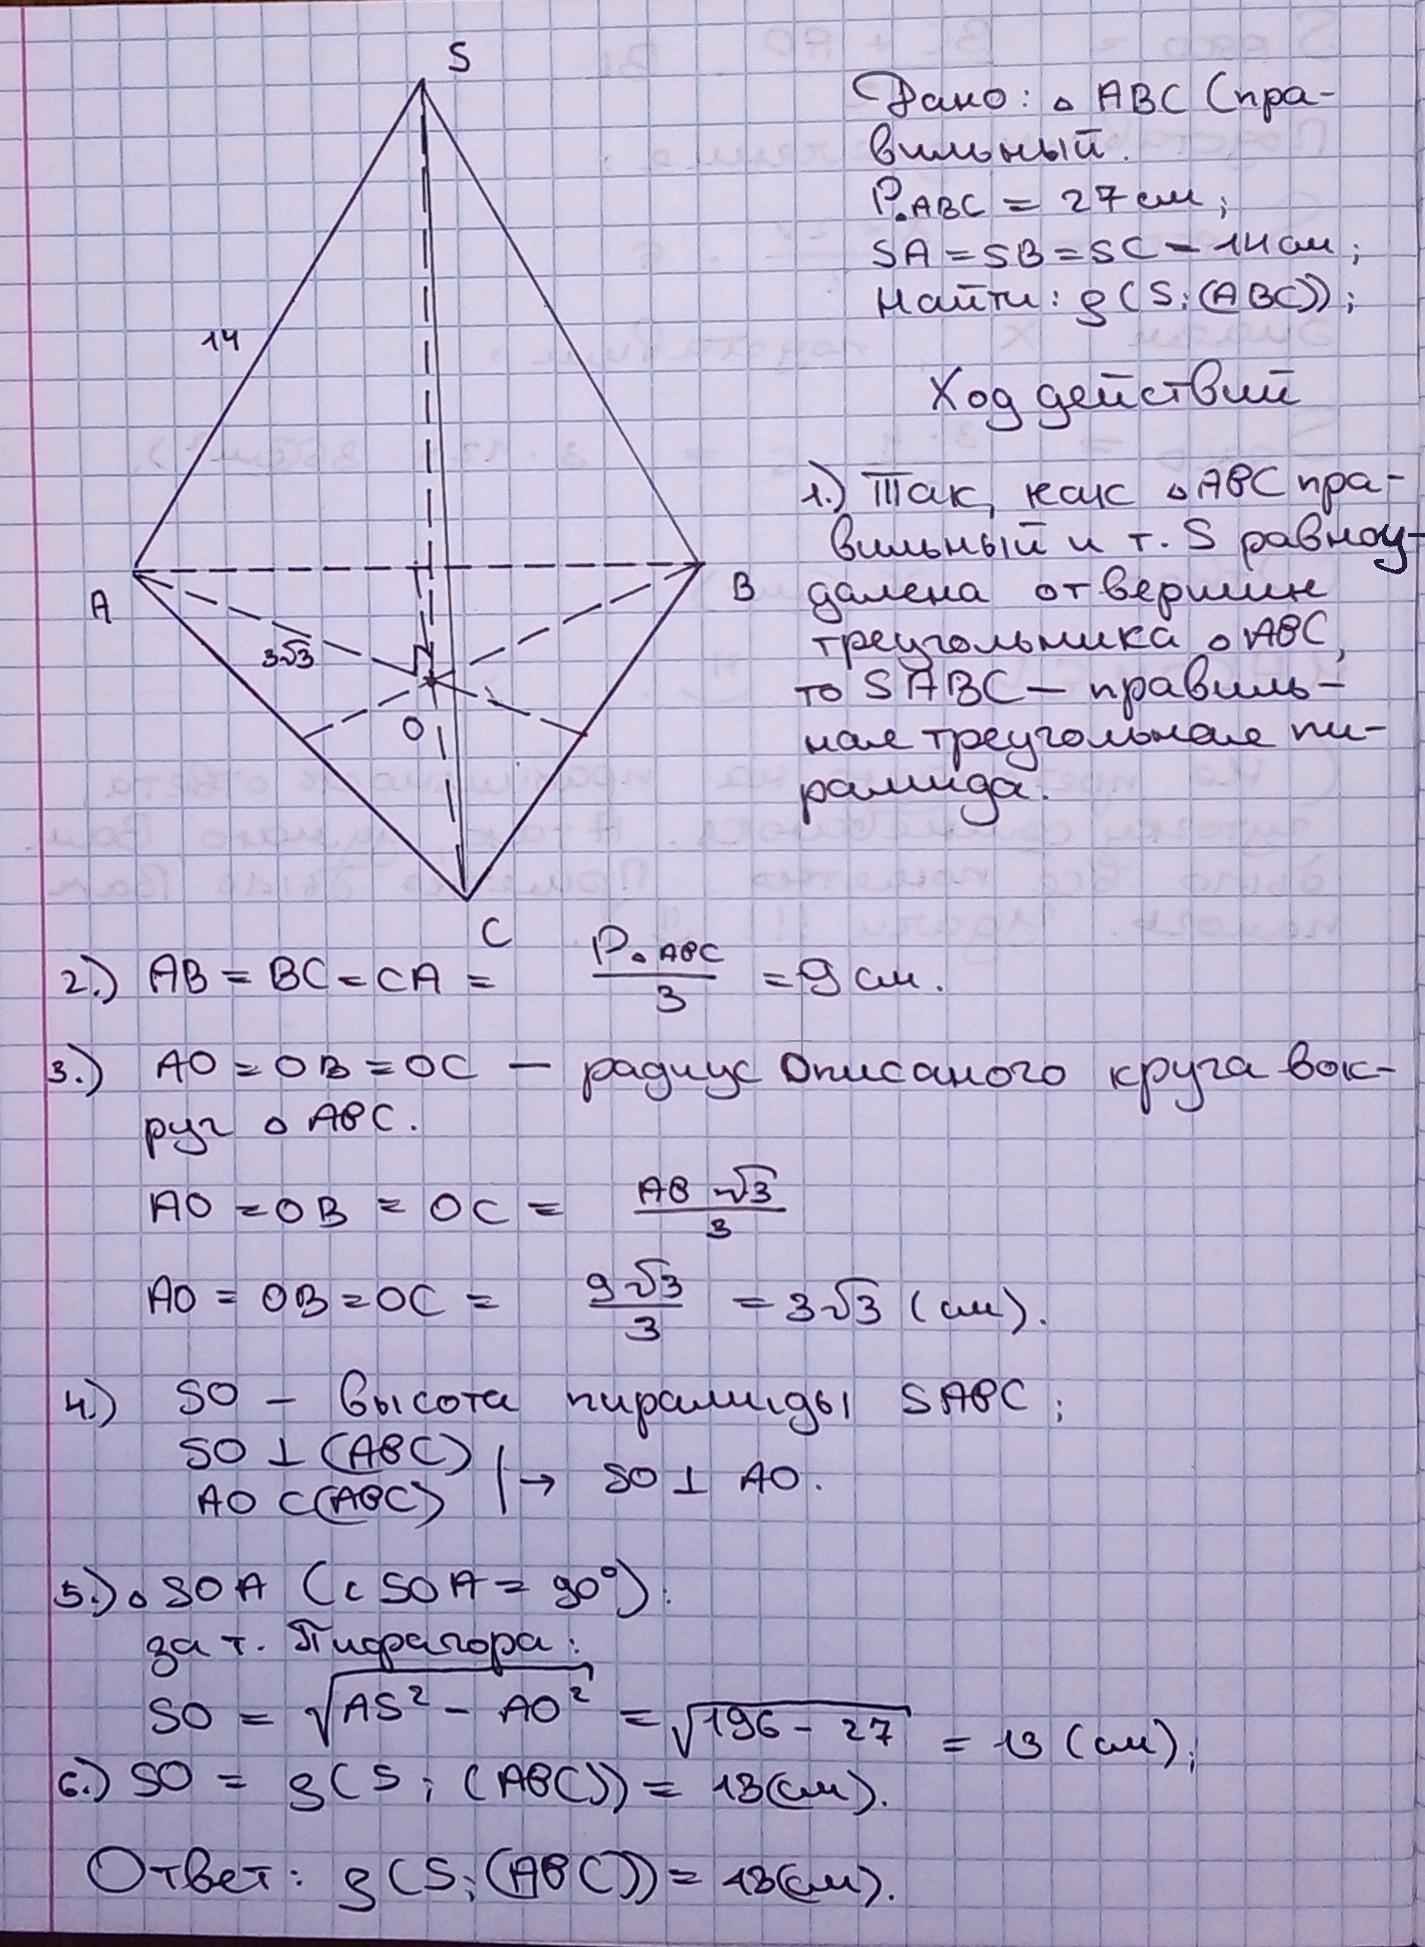 S
Дано: △ ABC (пра-
вильный.
P△ABC = 27 см;
SA = SB = SC - 14 см;
Найти: ρ(S; (ABC));
14
Ход действий
1.) Так, как △ABC пра-
вильный и т. S равноу-
далена от вершин
треугольника △ABC,
то SABC — правиль-
ная треугольная пи-
рамида.
A
B
3√3
O
C
2.) AB = BC = CA = P△ABC / 3 = 9 см.
3.) AO = OB = OC — радиус описаного круга вок-
руг △ ABC.
AO = OB = OC = AB √3 / 3
AO = OB = OC = 9√3 / 3 = 3√3 (см).
4.) SO – высота пирамиды SABC;
SO ⊥ (ABC)
AO ⊂ (ABC) | → SO ⊥ AO.
5.) △ SOA (∠ SOA = 90°):
за т. Пифагора:
SO = √(AS² − AO²) = √(196 − 27) = 13 (см);
6.) SO = ρ(S; (ABC)) = 13(см).
Ответ: ρ(S; (ABC)) = 13(см).